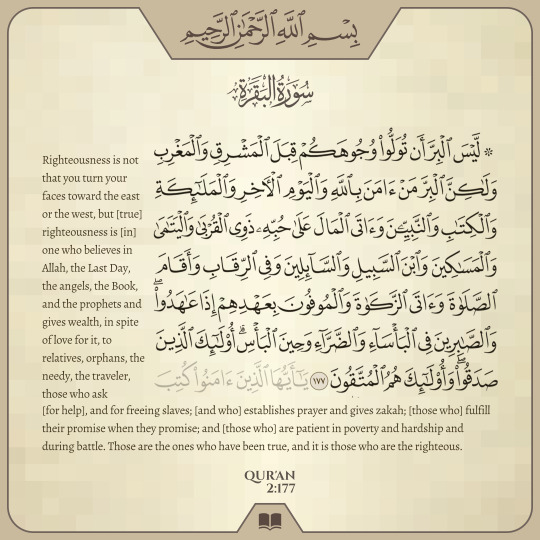 بِسْمِ اللَّهِ الرَّحْمَٰنِ الرَّحِيمِ
سُورَةُ البَقَرَةِ
۞ لَّيْسَ ٱلْبِرَّ أَن تُوَلُّوا۟ وُجُوهَكُمْ قِبَلَ ٱلْمَشْرِقِ وَٱلْمَغْرِبِ
وَلَٰكِنَّ ٱلْبِرَّ مَنْ ءَامَنَ بِٱللَّهِ وَٱلْيَوْمِ ٱلْءَاخِرِ وَٱلْمَلَٰٓئِكَةِ
وَٱلْكِتَٰبِ وَٱلنَّبِيِّۦنَ وَءَاتَى ٱلْمَالَ عَلَىٰ حُبِّهِۦ ذَوِى ٱلْقُرْبَىٰ وَٱلْيَتَٰمَىٰ
وَٱلْمَسَٰكِينَ وَٱبْنَ ٱلسَّبِيلِ وَٱلسَّآئِلِينَ وَفِى ٱلرِّقَابِ وَأَقَامَ
ٱلصَّلَوٰةَ وَءَاتَى ٱلزَّكَوٰةَ وَٱلْمُوفُونَ بِعَهْدِهِمْ إِذَا عَٰهَدُوا۟ۖ
وَٱلصَّٰبِرِينَ فِى ٱلْبَأْسَآءِ وَٱلضَّرَّآءِ وَحِينَ ٱلْبَأْسِۗ أُو۟لَٰٓئِكَ ٱلَّذِينَ
صَدَقُوا۟ۖ وَأُو۟لَٰٓئِكَ هُمُ ٱلْمُتَّقُونَ ١٧٧ يَٰٓأَيُّهَا ٱلَّذِينَ ءَامَنُوا۟ كُتِبَ
Righteousness is not
that you turn your
faces toward the east
or the west, but [true]
righteousness is [in]
one who believes in
Allah, the Last Day,
the angels, the Book,
and the prophets and
gives wealth, in spite
of love for it, to
relatives, orphans, the
needy, the traveler,
those who ask
[for help], and for freeing slaves; [and who] establishes prayer and gives zakah; [those who] fulfill
their promise when they promise; and [those who] are patient in poverty and hardship and
during battle. Those are the ones who have been true, and it is those who are the righteous.
QUR'AN
2:177